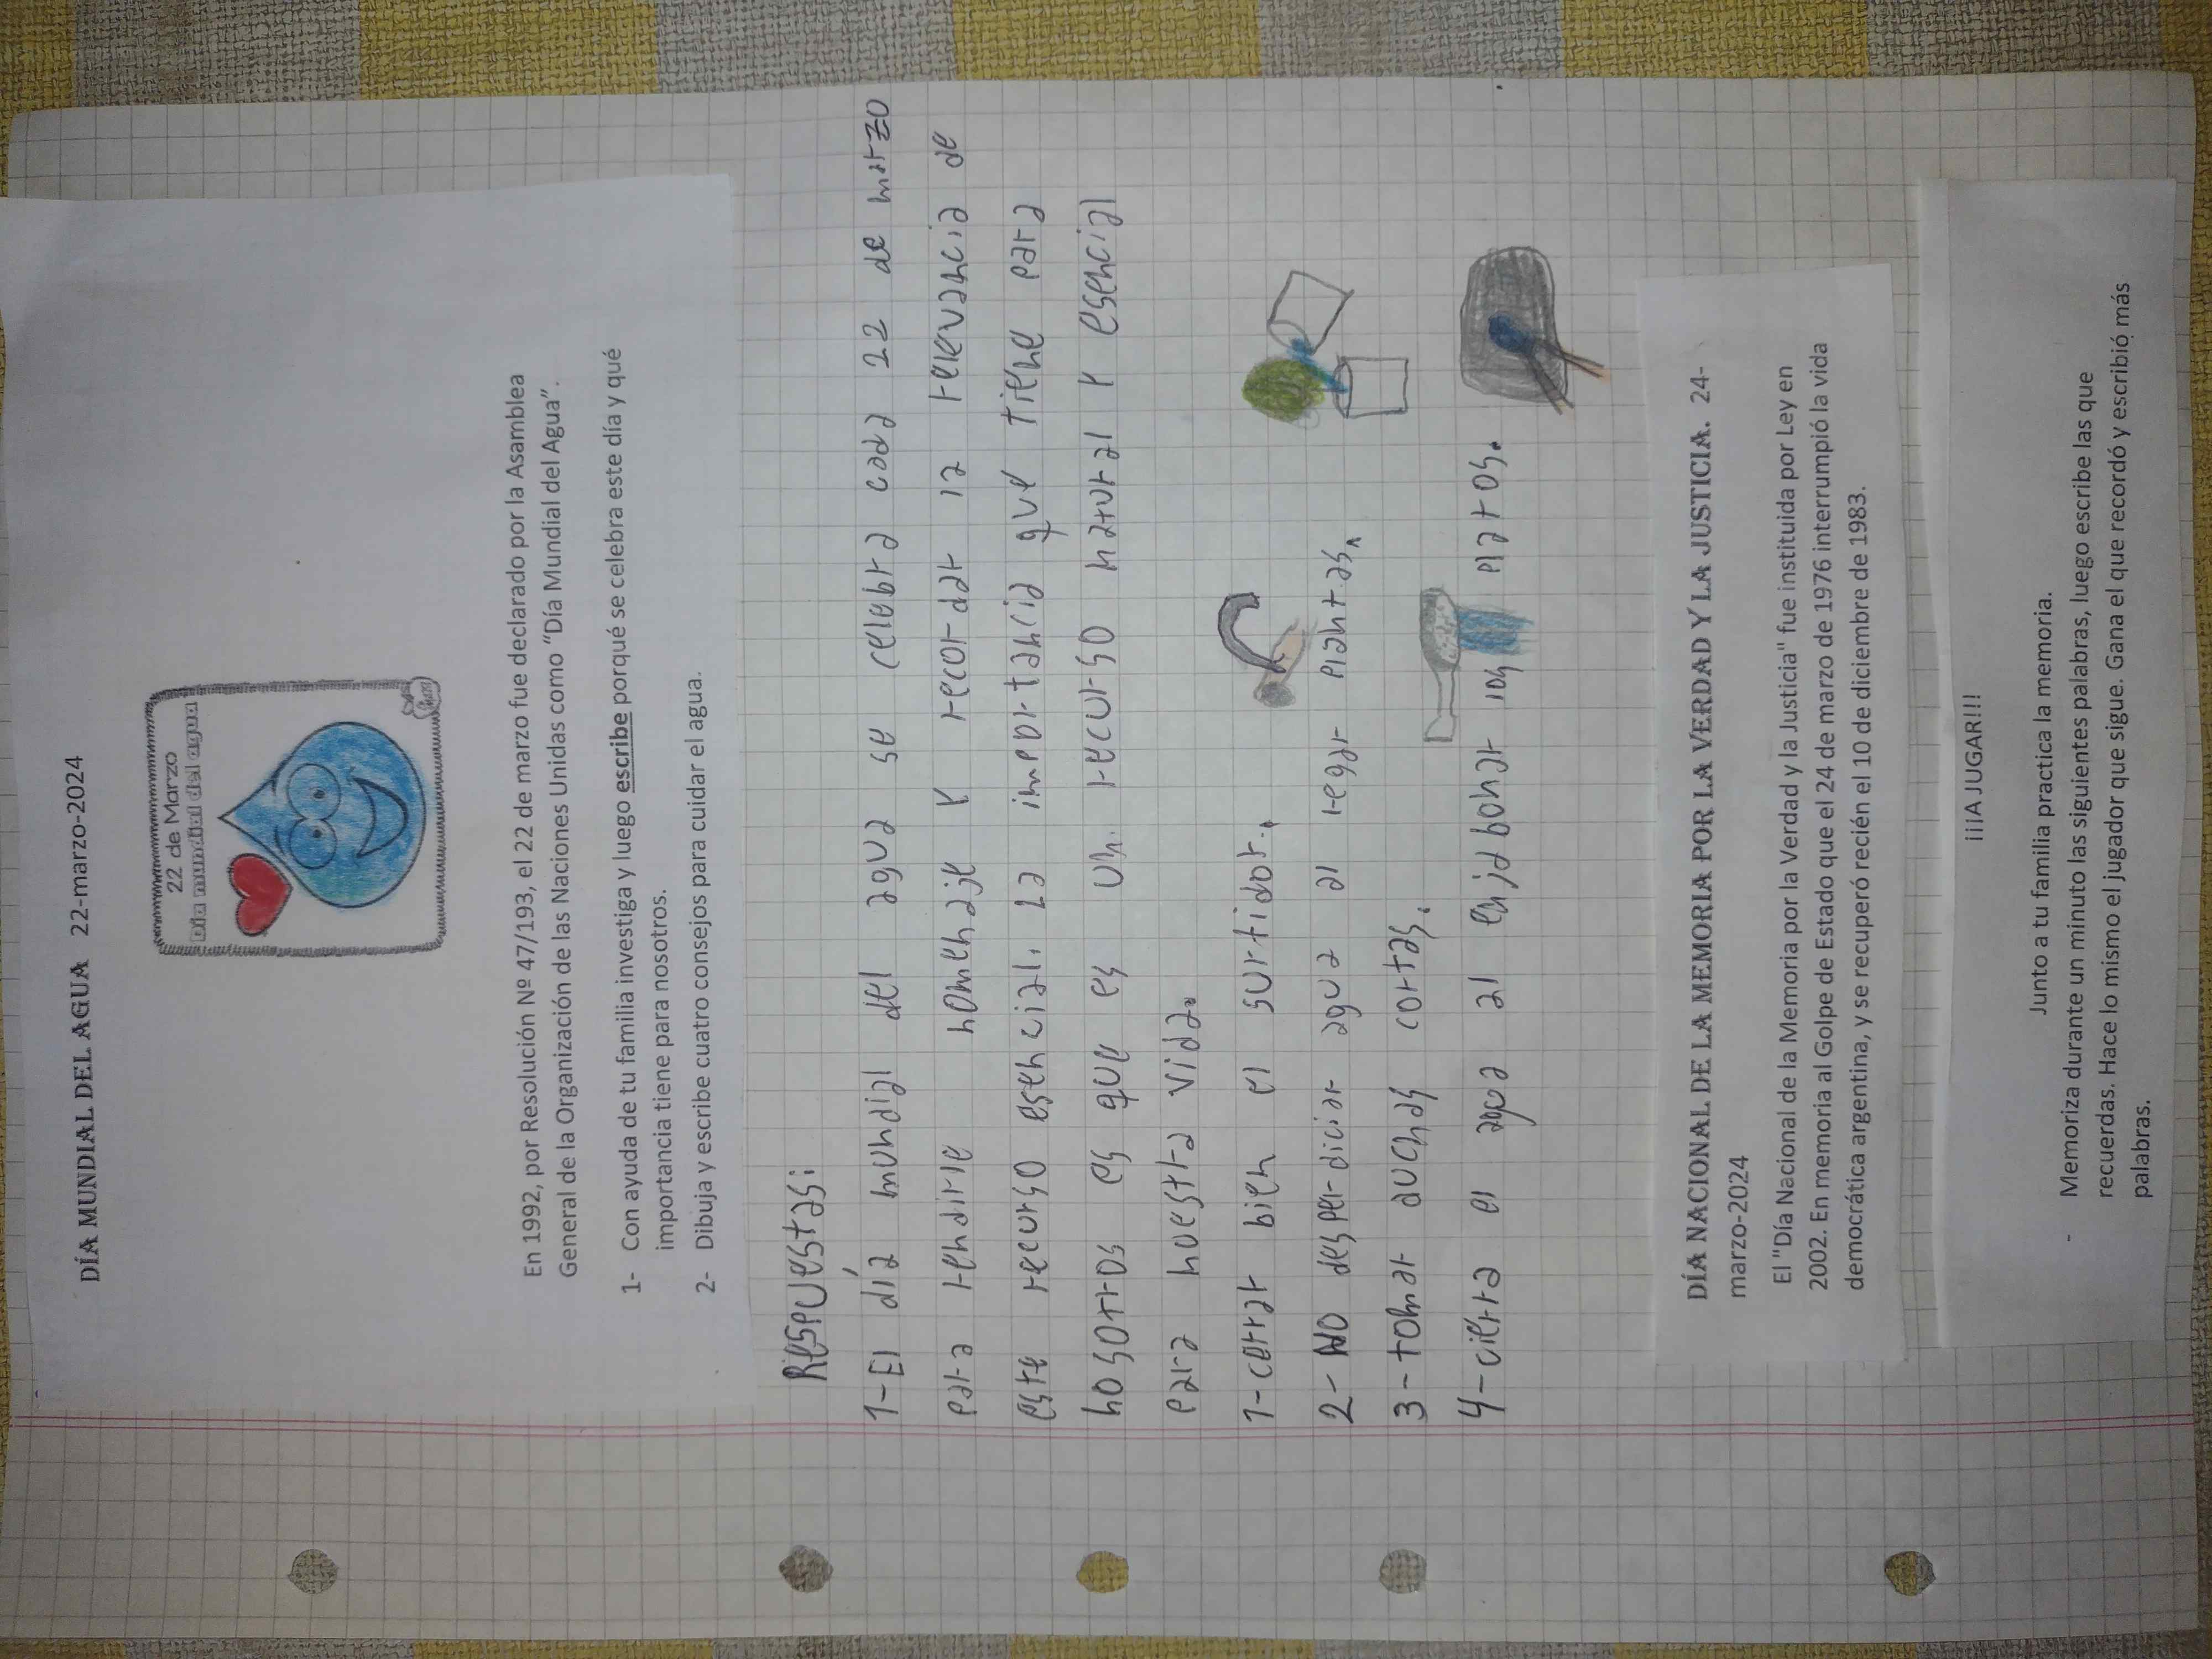 DÍA MUNDIAL DEL AGUA 22-marzo-2024
22 de Marzo
Día mundial del agua
En 1992, por Resolución Nº 47/193, el 22 de marzo fue declarado por la Asamblea
General de la Organización de las Naciones Unidas como "Día Mundial del Agua".
1- Con ayuda de tu familia investiga y luego escribe porqué se celebra este día y qué
importancia tiene para nosotros.
2- Dibuja y escribe cuatro consejos para cuidar el agua.
Respuestas:
1-El día mundial del agua se celebra cada 22 de marzo
para rendirle homenaje y recordar la relevancia de
este recurso esencial. La importancia que tiene para
nosotros es que es un recurso natural y esencial
para nuestra vida.
1-cerrar bien el surtidor.
2-No desperdiciar agua al regar plantas.
3-tomar duchas cortas.
4-cierra el agua al enjabonar los platos.
DÍA NACIONAL DE LA MEMORIA POR LA VERDAD Y LA JUSTICIA. 24-
marzo-2024
El "Día Nacional de la Memoria por la Verdad y la Justicia" fue instituida por Ley en
2002. En memoria al Golpe de Estado que el 24 de marzo de 1976 interrumpió la vida
democrática argentina, y se recuperó recién el 10 de diciembre de 1983.
¡¡¡A JUGAR!!!
Junto a tu familia practica la memoria.
- Memoriza durante un minuto las siguientes palabras, luego escribe las que
recuerdas. Hace lo mismo el jugador que sigue. Gana el que recordó y escribió más
palabras.